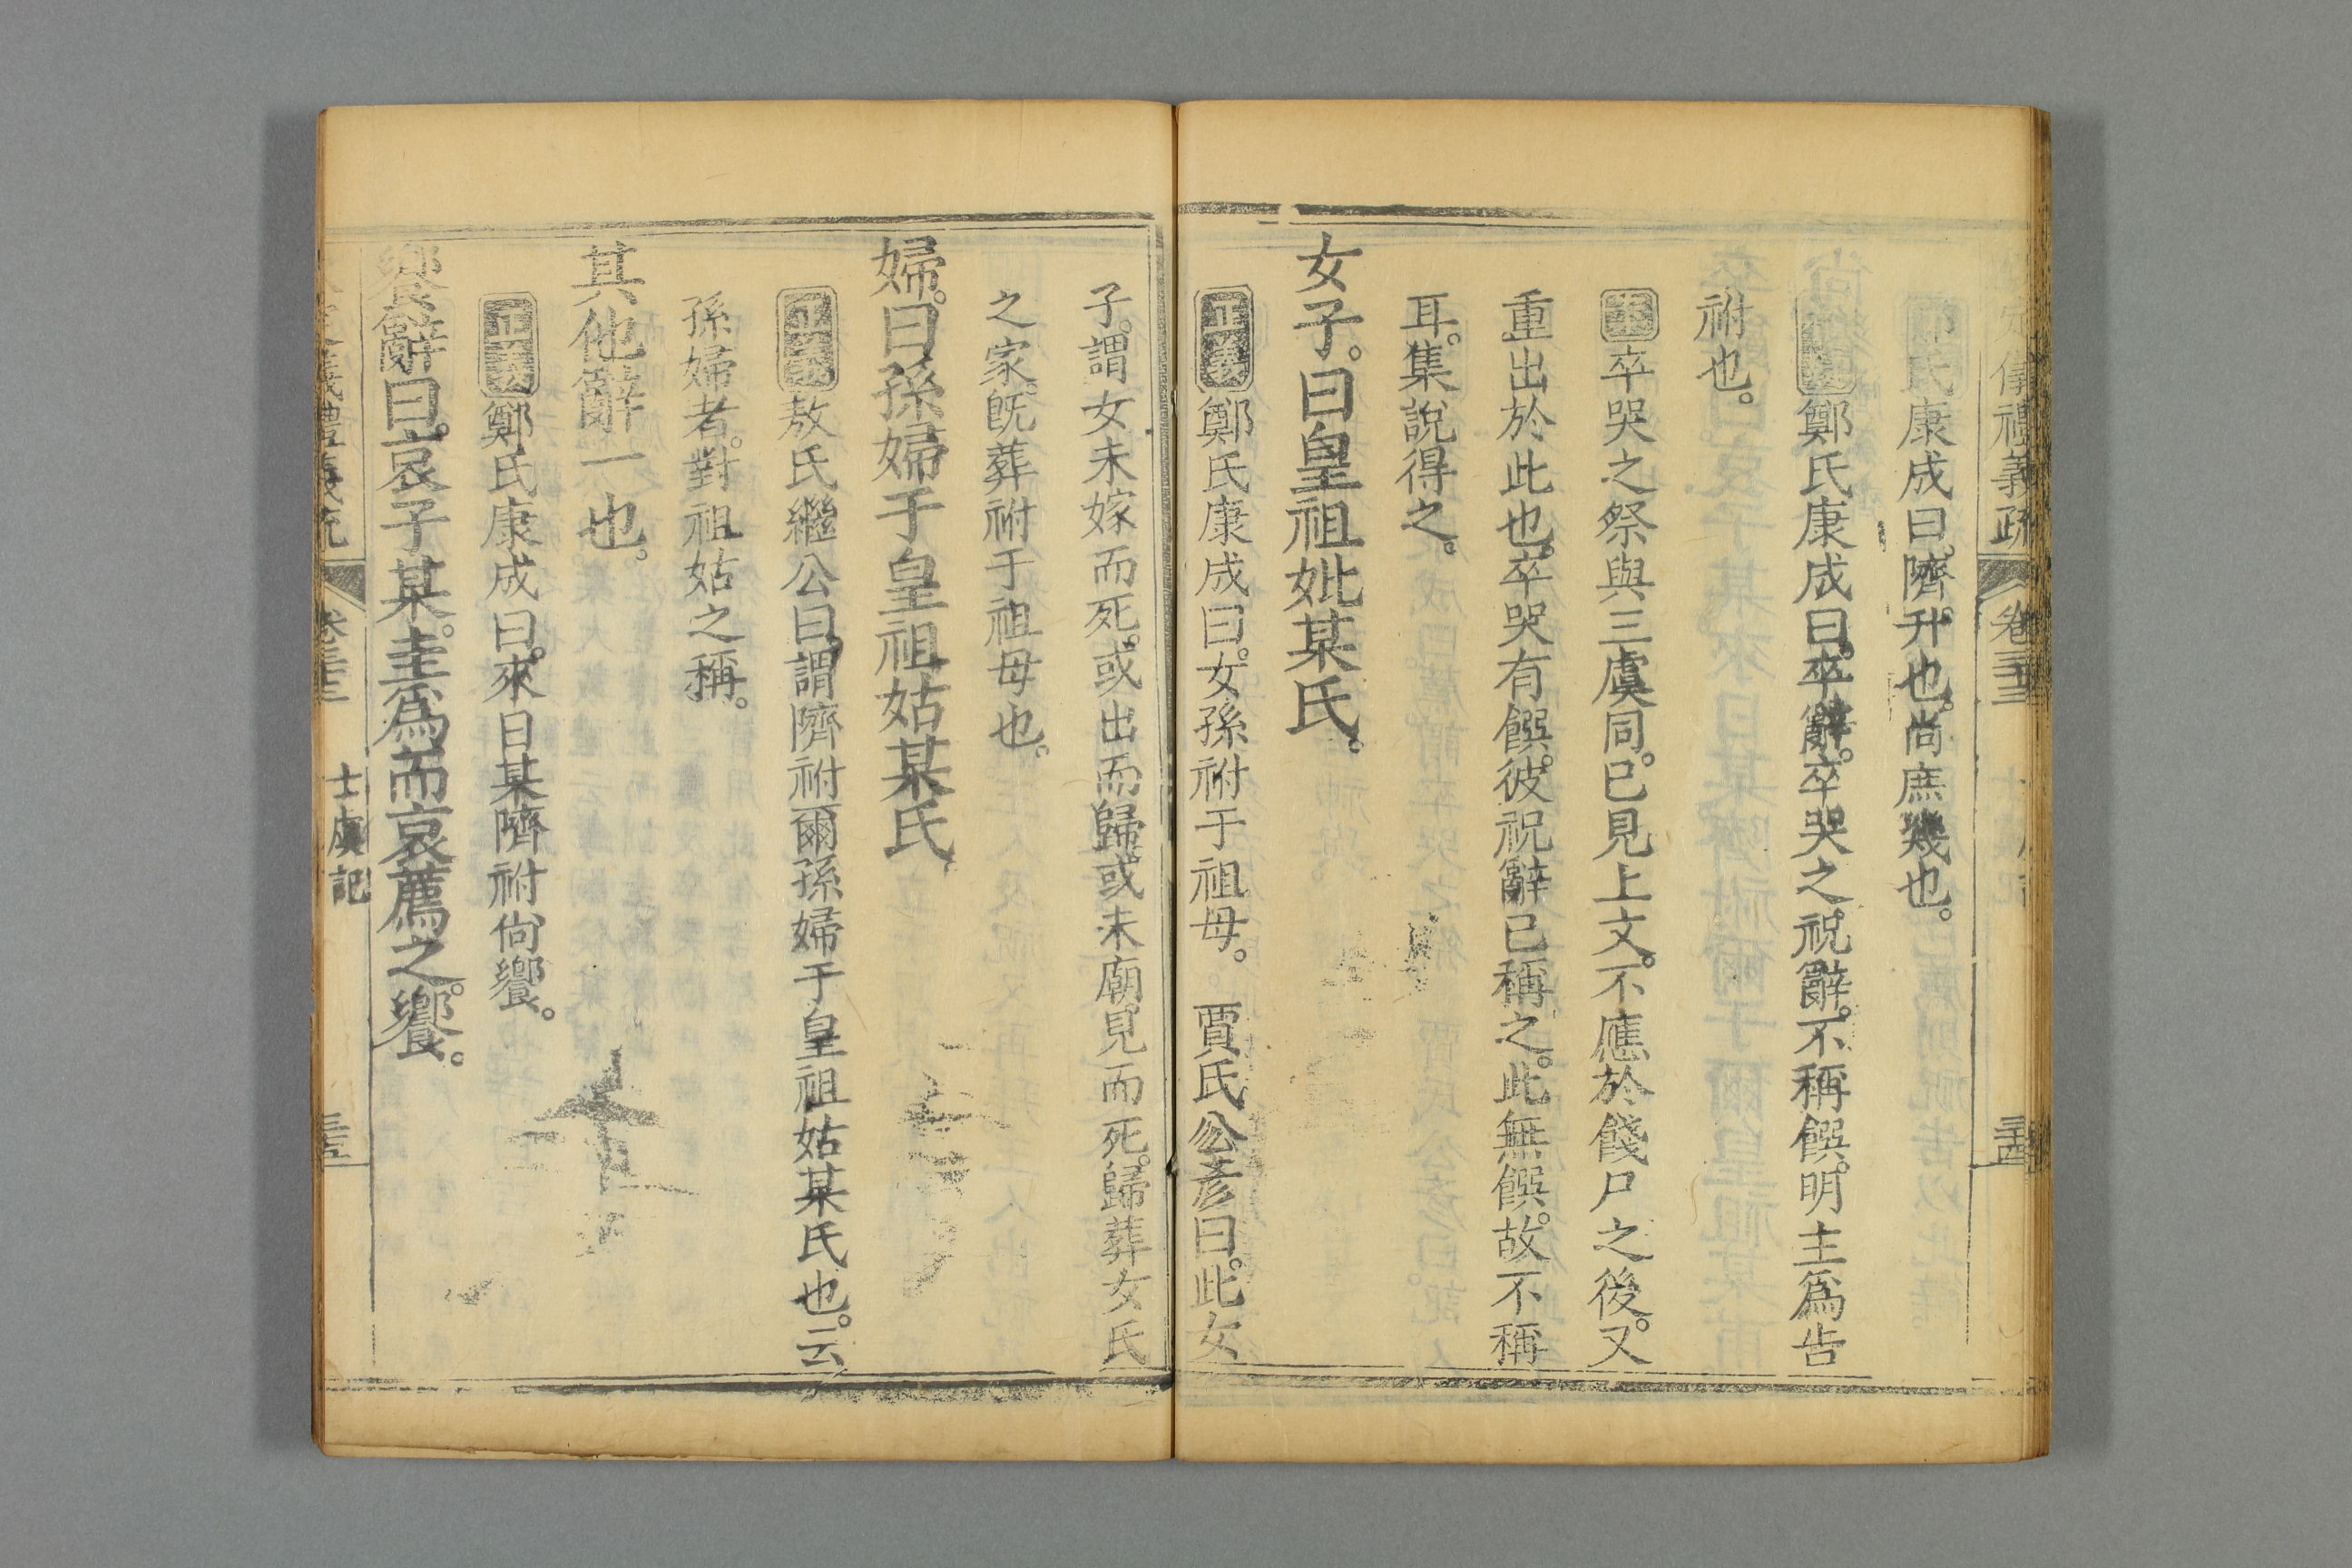 儀禮義疏 卷三十三
三十四
氏康成曰。隮。升也。尚。庶幾也。
鄭氏康成曰。卒辭。卒哭之祝辭。不稱饌。明主爲告
祔也。
案卒哭之祭與三虞同。已見上文。不應於餞尸之後。又
重出於此也。卒哭有饌。彼祝辭已稱之。此無饌。故不稱
耳。集說得之。
女子。曰皇祖妣某氏。
正義鄭氏康成曰。女孫祔于祖母。 賈氏公彥曰。此女
子。謂女未嫁而死。或出而歸。或未廟見而死。歸葬女氏
之家。旣葬祔于祖母也。
婦。曰孫婦于皇祖姑某氏
正義敖氏繼公曰。謂隮祔爾孫婦于皇祖姑某氏也。云
孫婦者。對祖姑之稱。
其他辭一也。
正義鄭氏康成曰。來日某隮祔尙饗。
饗辭曰。哀子某。圭爲而哀薦之。饗。
儀禮義疏 卷三十三 士虞記 三十五